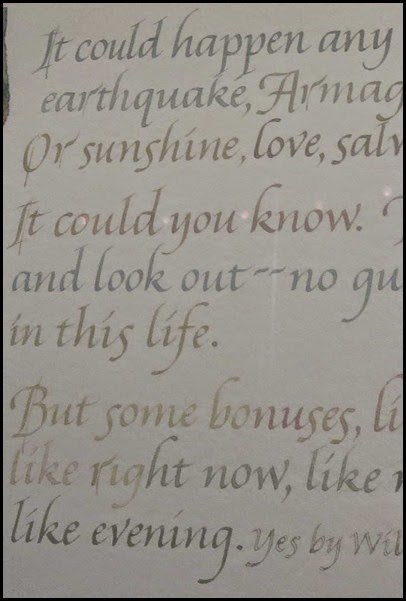 It could happen any
earthquake, Armag
Or sunshine, love, salv
It could you know.
and look out--no gu
in this life.
But some bonuses, li
like right now, like
like evening. Yes by Wil